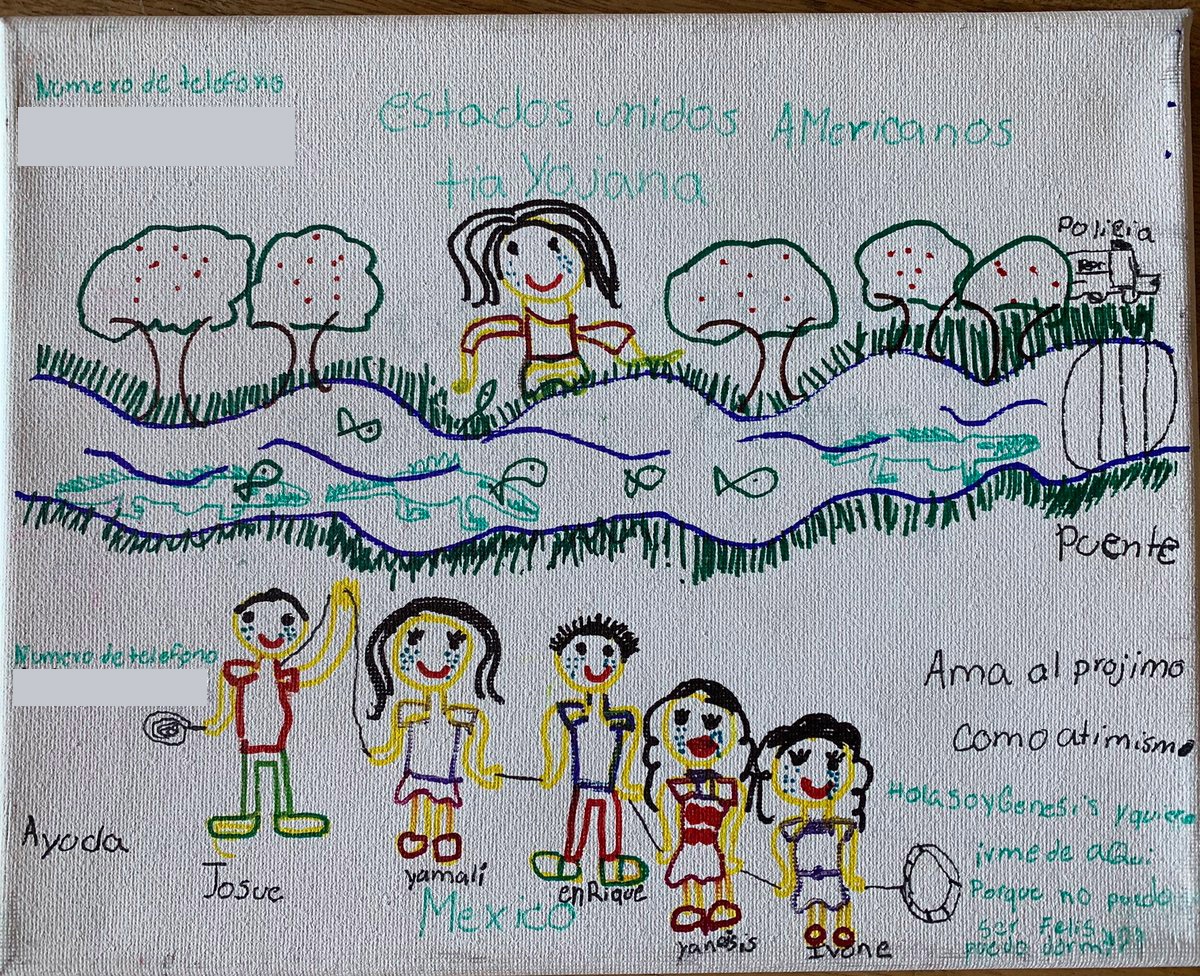 Numero de telefono
estados unidos Americanos
tia Yojana
Policia
Puente
Numero de telefono
Ama al projimo
Como atimismo
Hola soy Genesis y quiero
irme de aqui
Porque no puedo
ser Felis
puedo dormir
Ayuda
Josue
yamali
enRique
Mexico
yanesis
Ivone